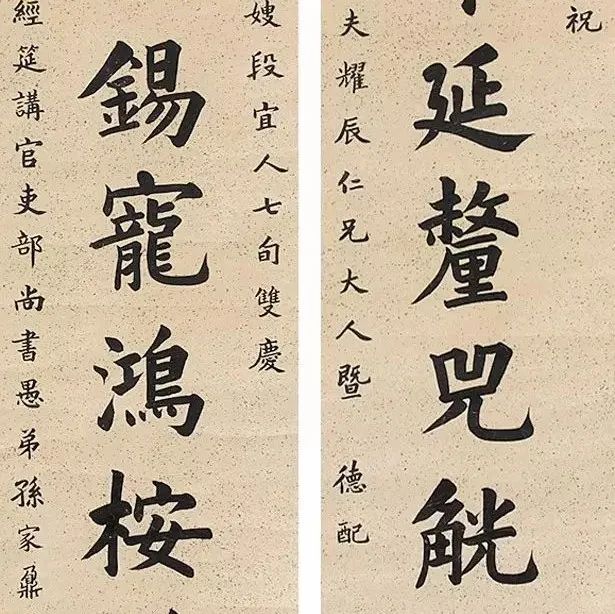 祝
延釐兕觥
夫耀辰仁兄大人暨 德配
嫂段宜人七旬雙慶
錫寵鴻桉
經筵講官吏部尚書愚弟孫家鼐